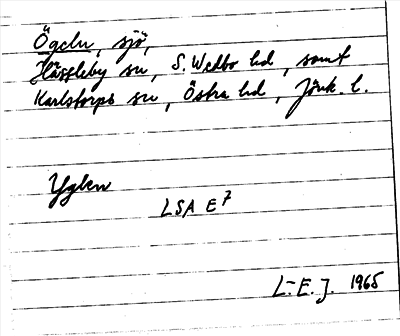 Ögeln, sjö,
Hässleby sn, S. Wedbo hd, samt
Karlstorps sn, Östra hd, Jönk. l.
Yglen
LSA E7
L-E. J. 1965